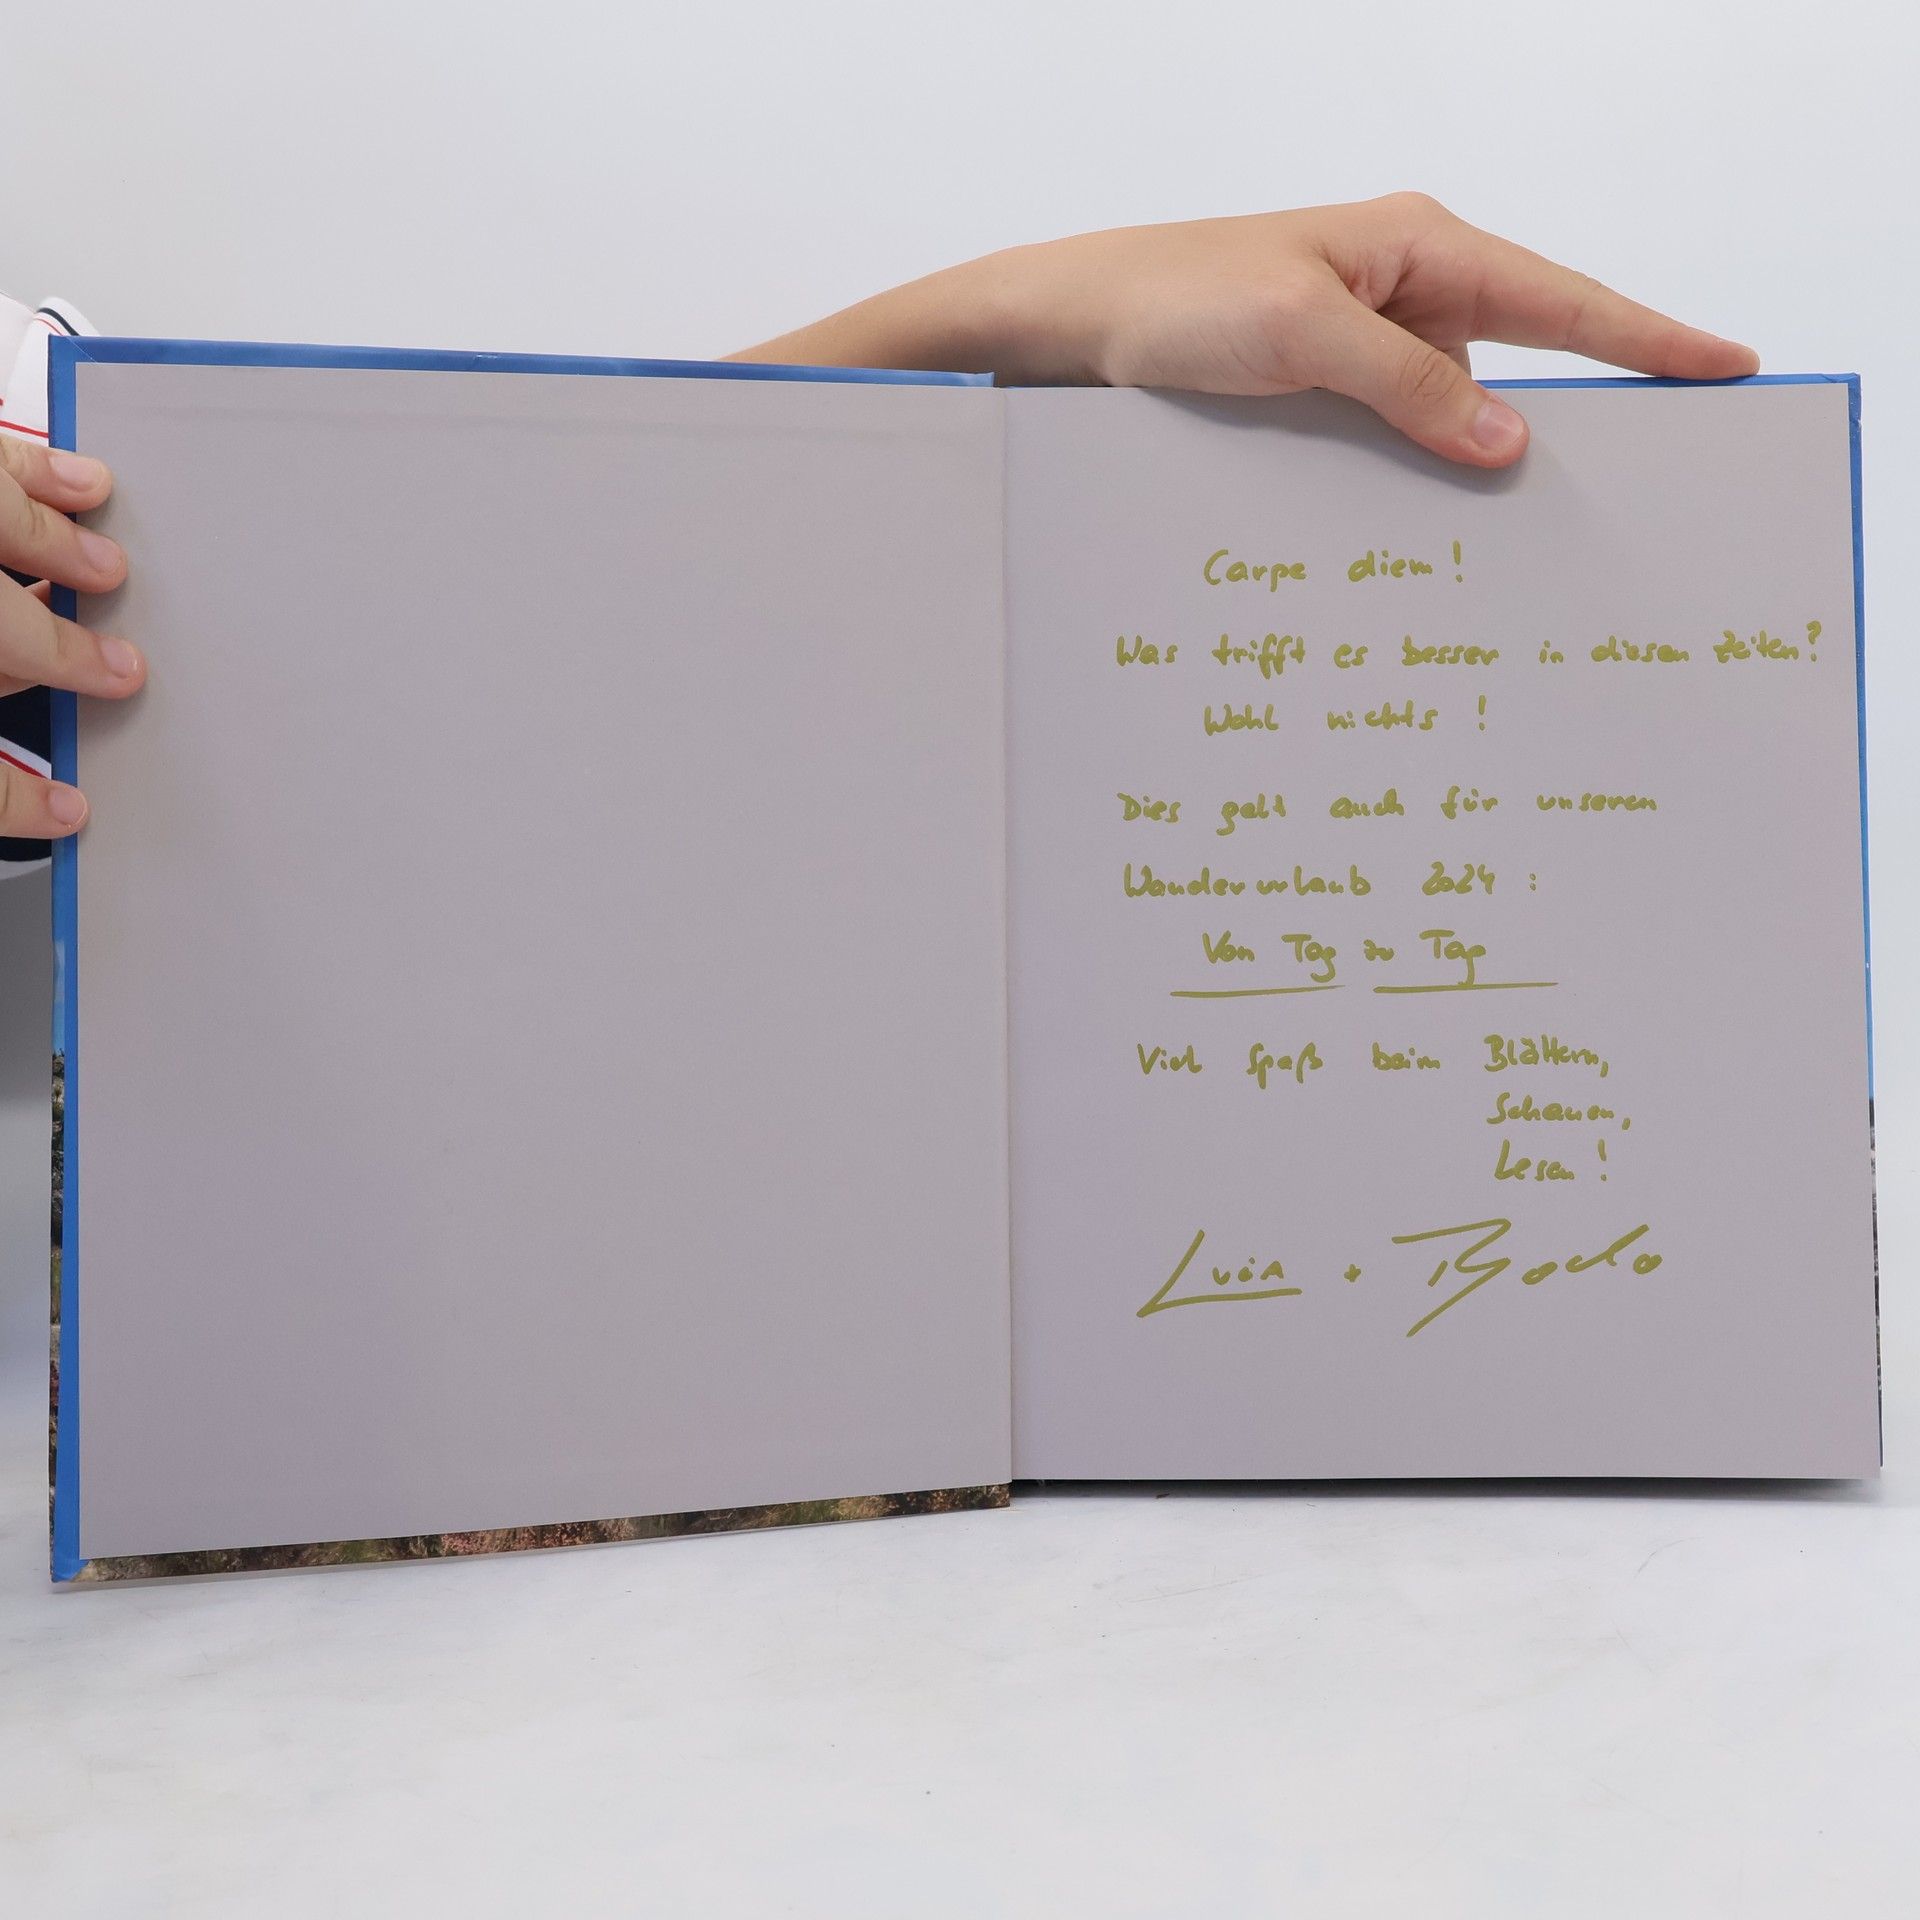 Carpe diem!
Was trifft es besser in diesen Zeiten?
Wohl nichts!
Dies galt auch für unseren
Wanderurlaub 2024:
Von Tag zu Tag
Viel Spaß beim Blättern,
Schauen,
Lesen!
+